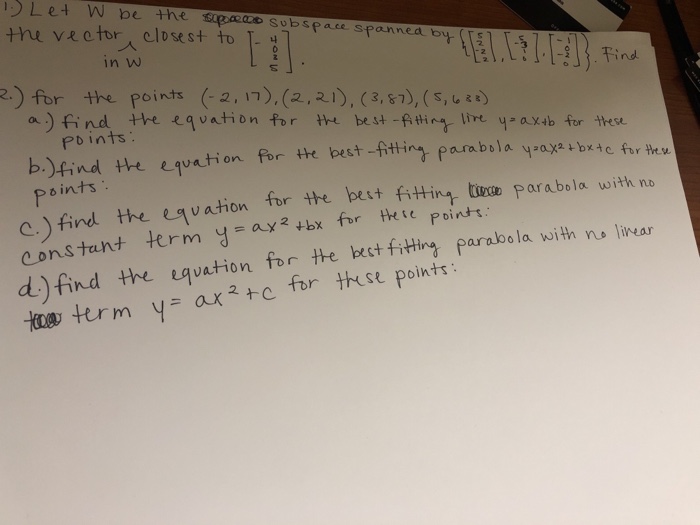 1.) Let W be the subspace spanned by {[5 2 -2 2], [-5 3 1 0], [-1 0 -2 0]}. Find
the vector in W closest to [-4 0 2 5].
2.) for the points (-2, 17), (2, 21), (3, 87), (5, 633)
a.) find the equation for the best-fitting line y=ax+b for these
points:
b.) find the equation for the best-fitting parabola y=ax²+bx+c for these
points:
c.) find the equation for the best fitting parabola with no
constant term y=ax²+bx for these points:
d.) find the equation for the best fitting parabola with no linear
term y= ax²+c for these points: